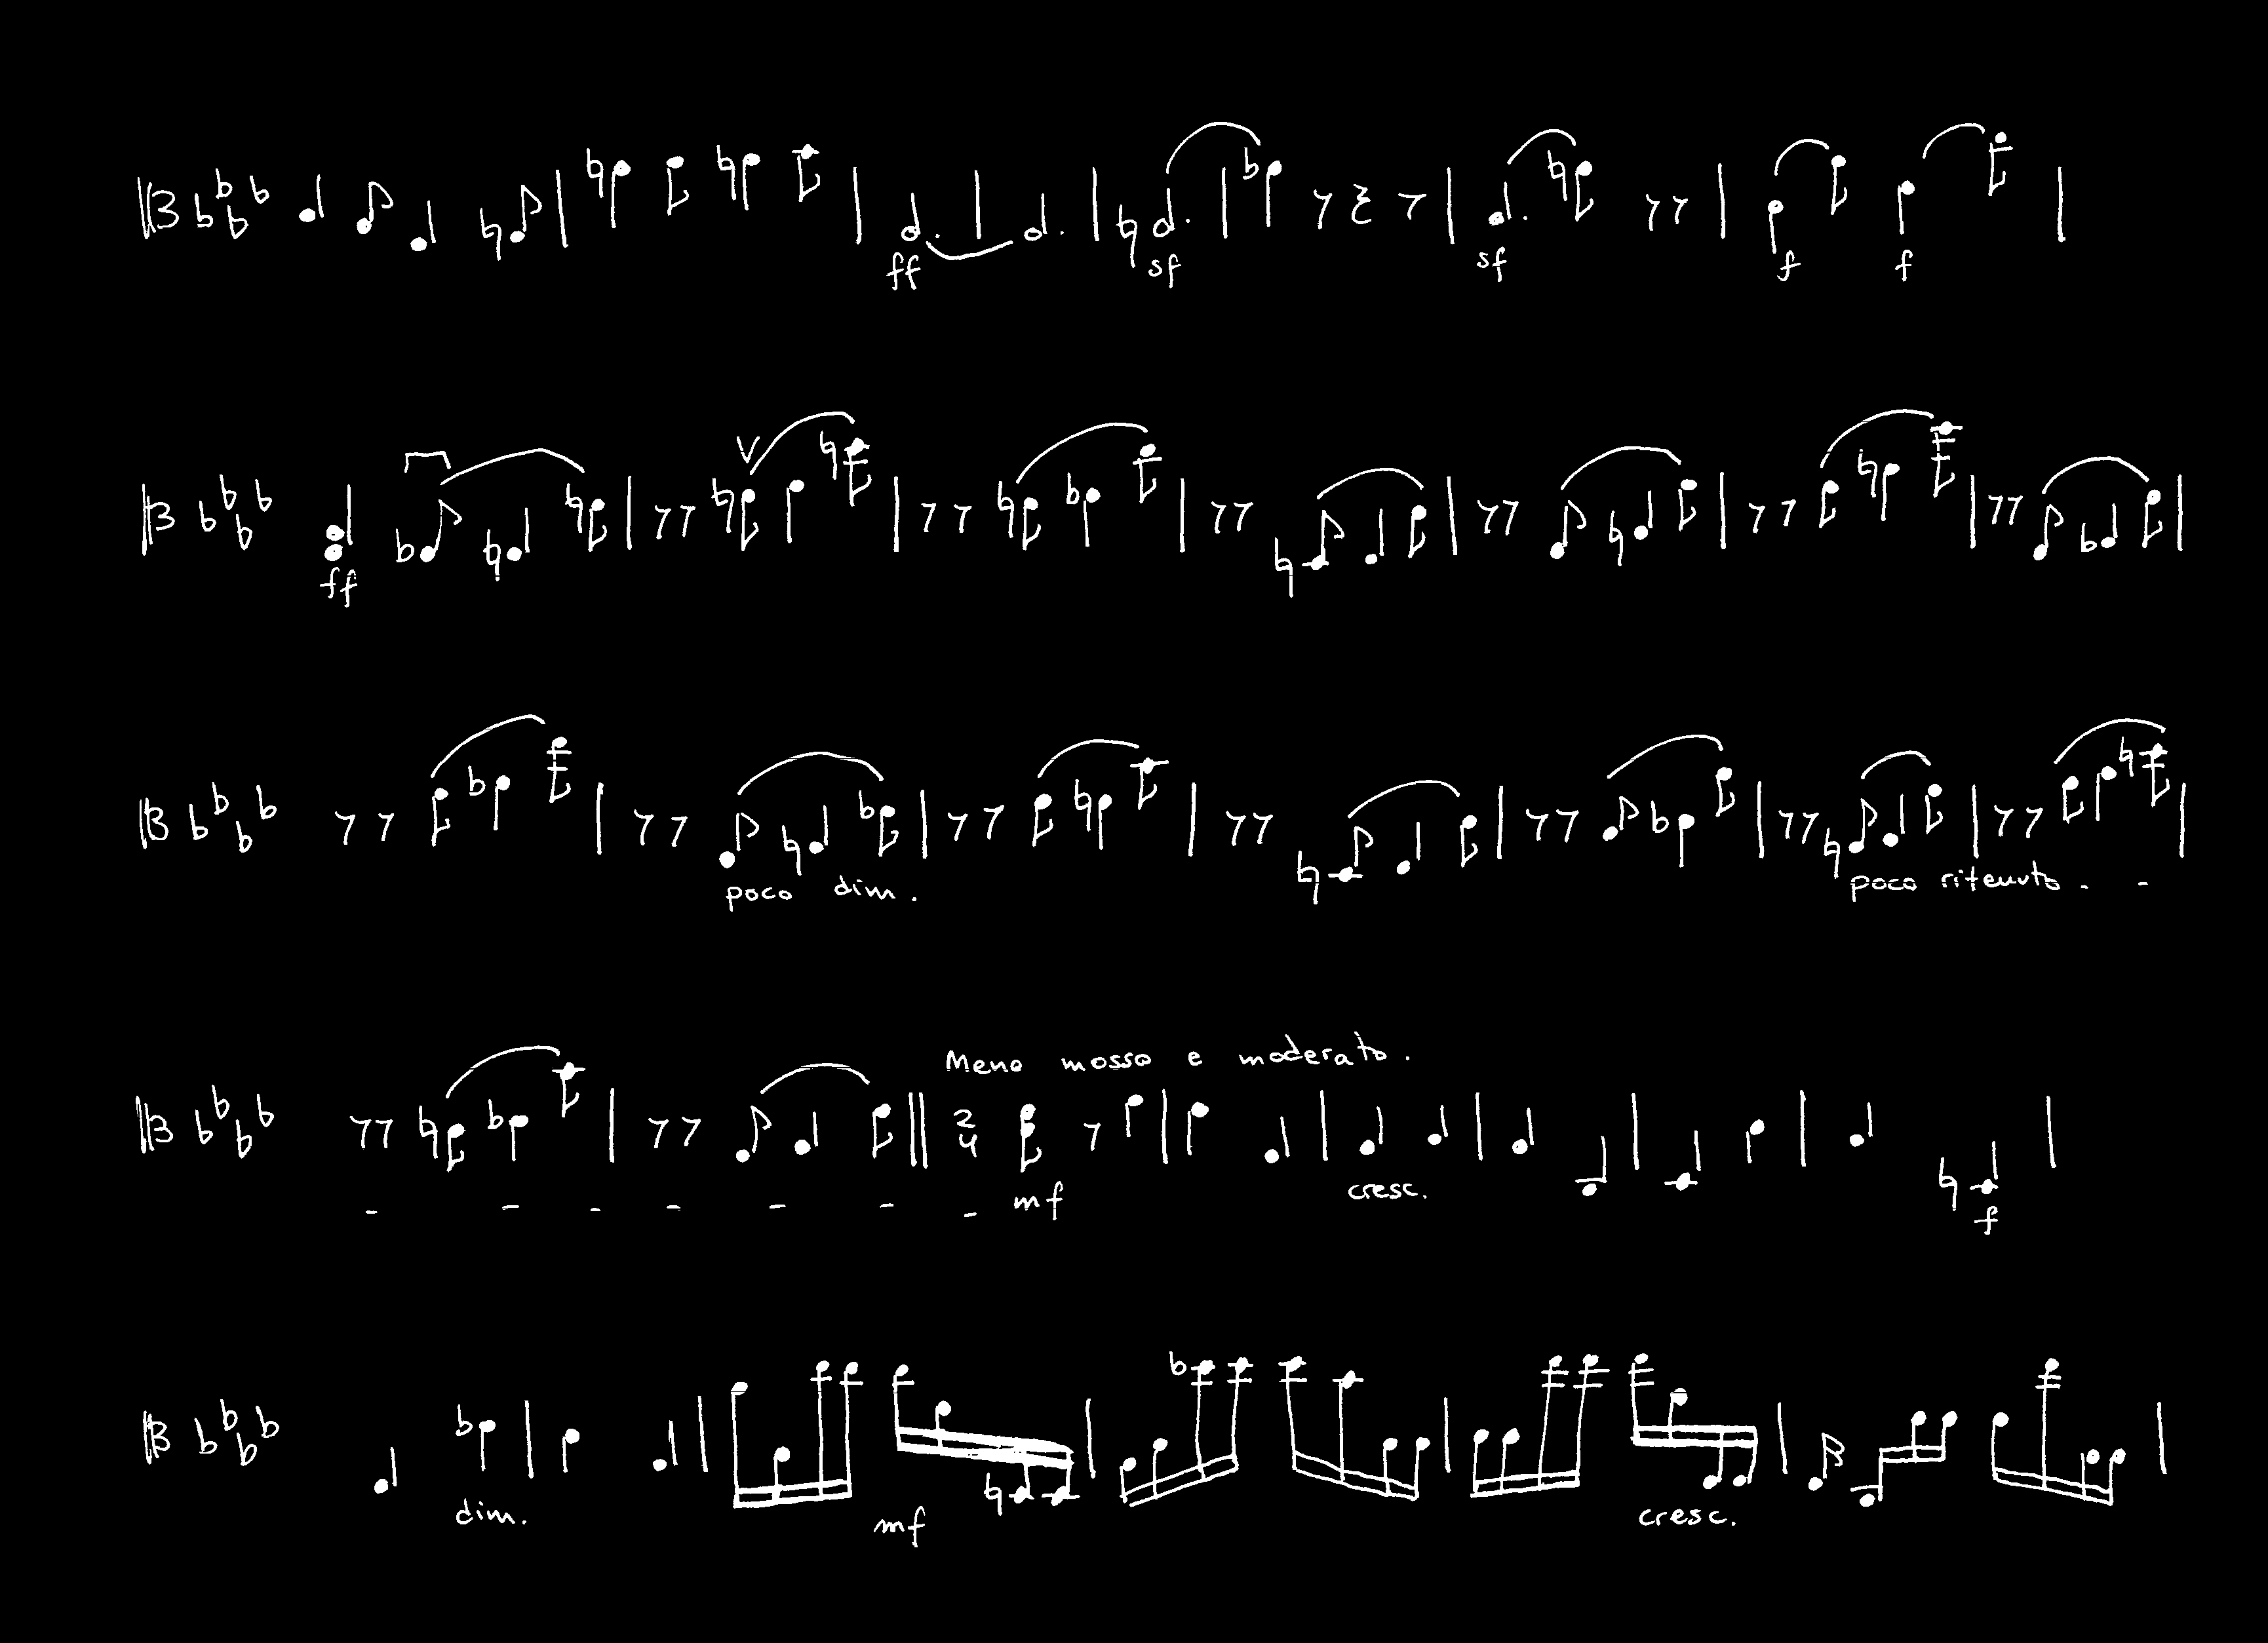 ff sf sf f f
ff
poco dim. poco ritenuto - -
Meno mosso e moderato.
2 4
- - - - - - - mf cresc. f
dim. mf cresc.